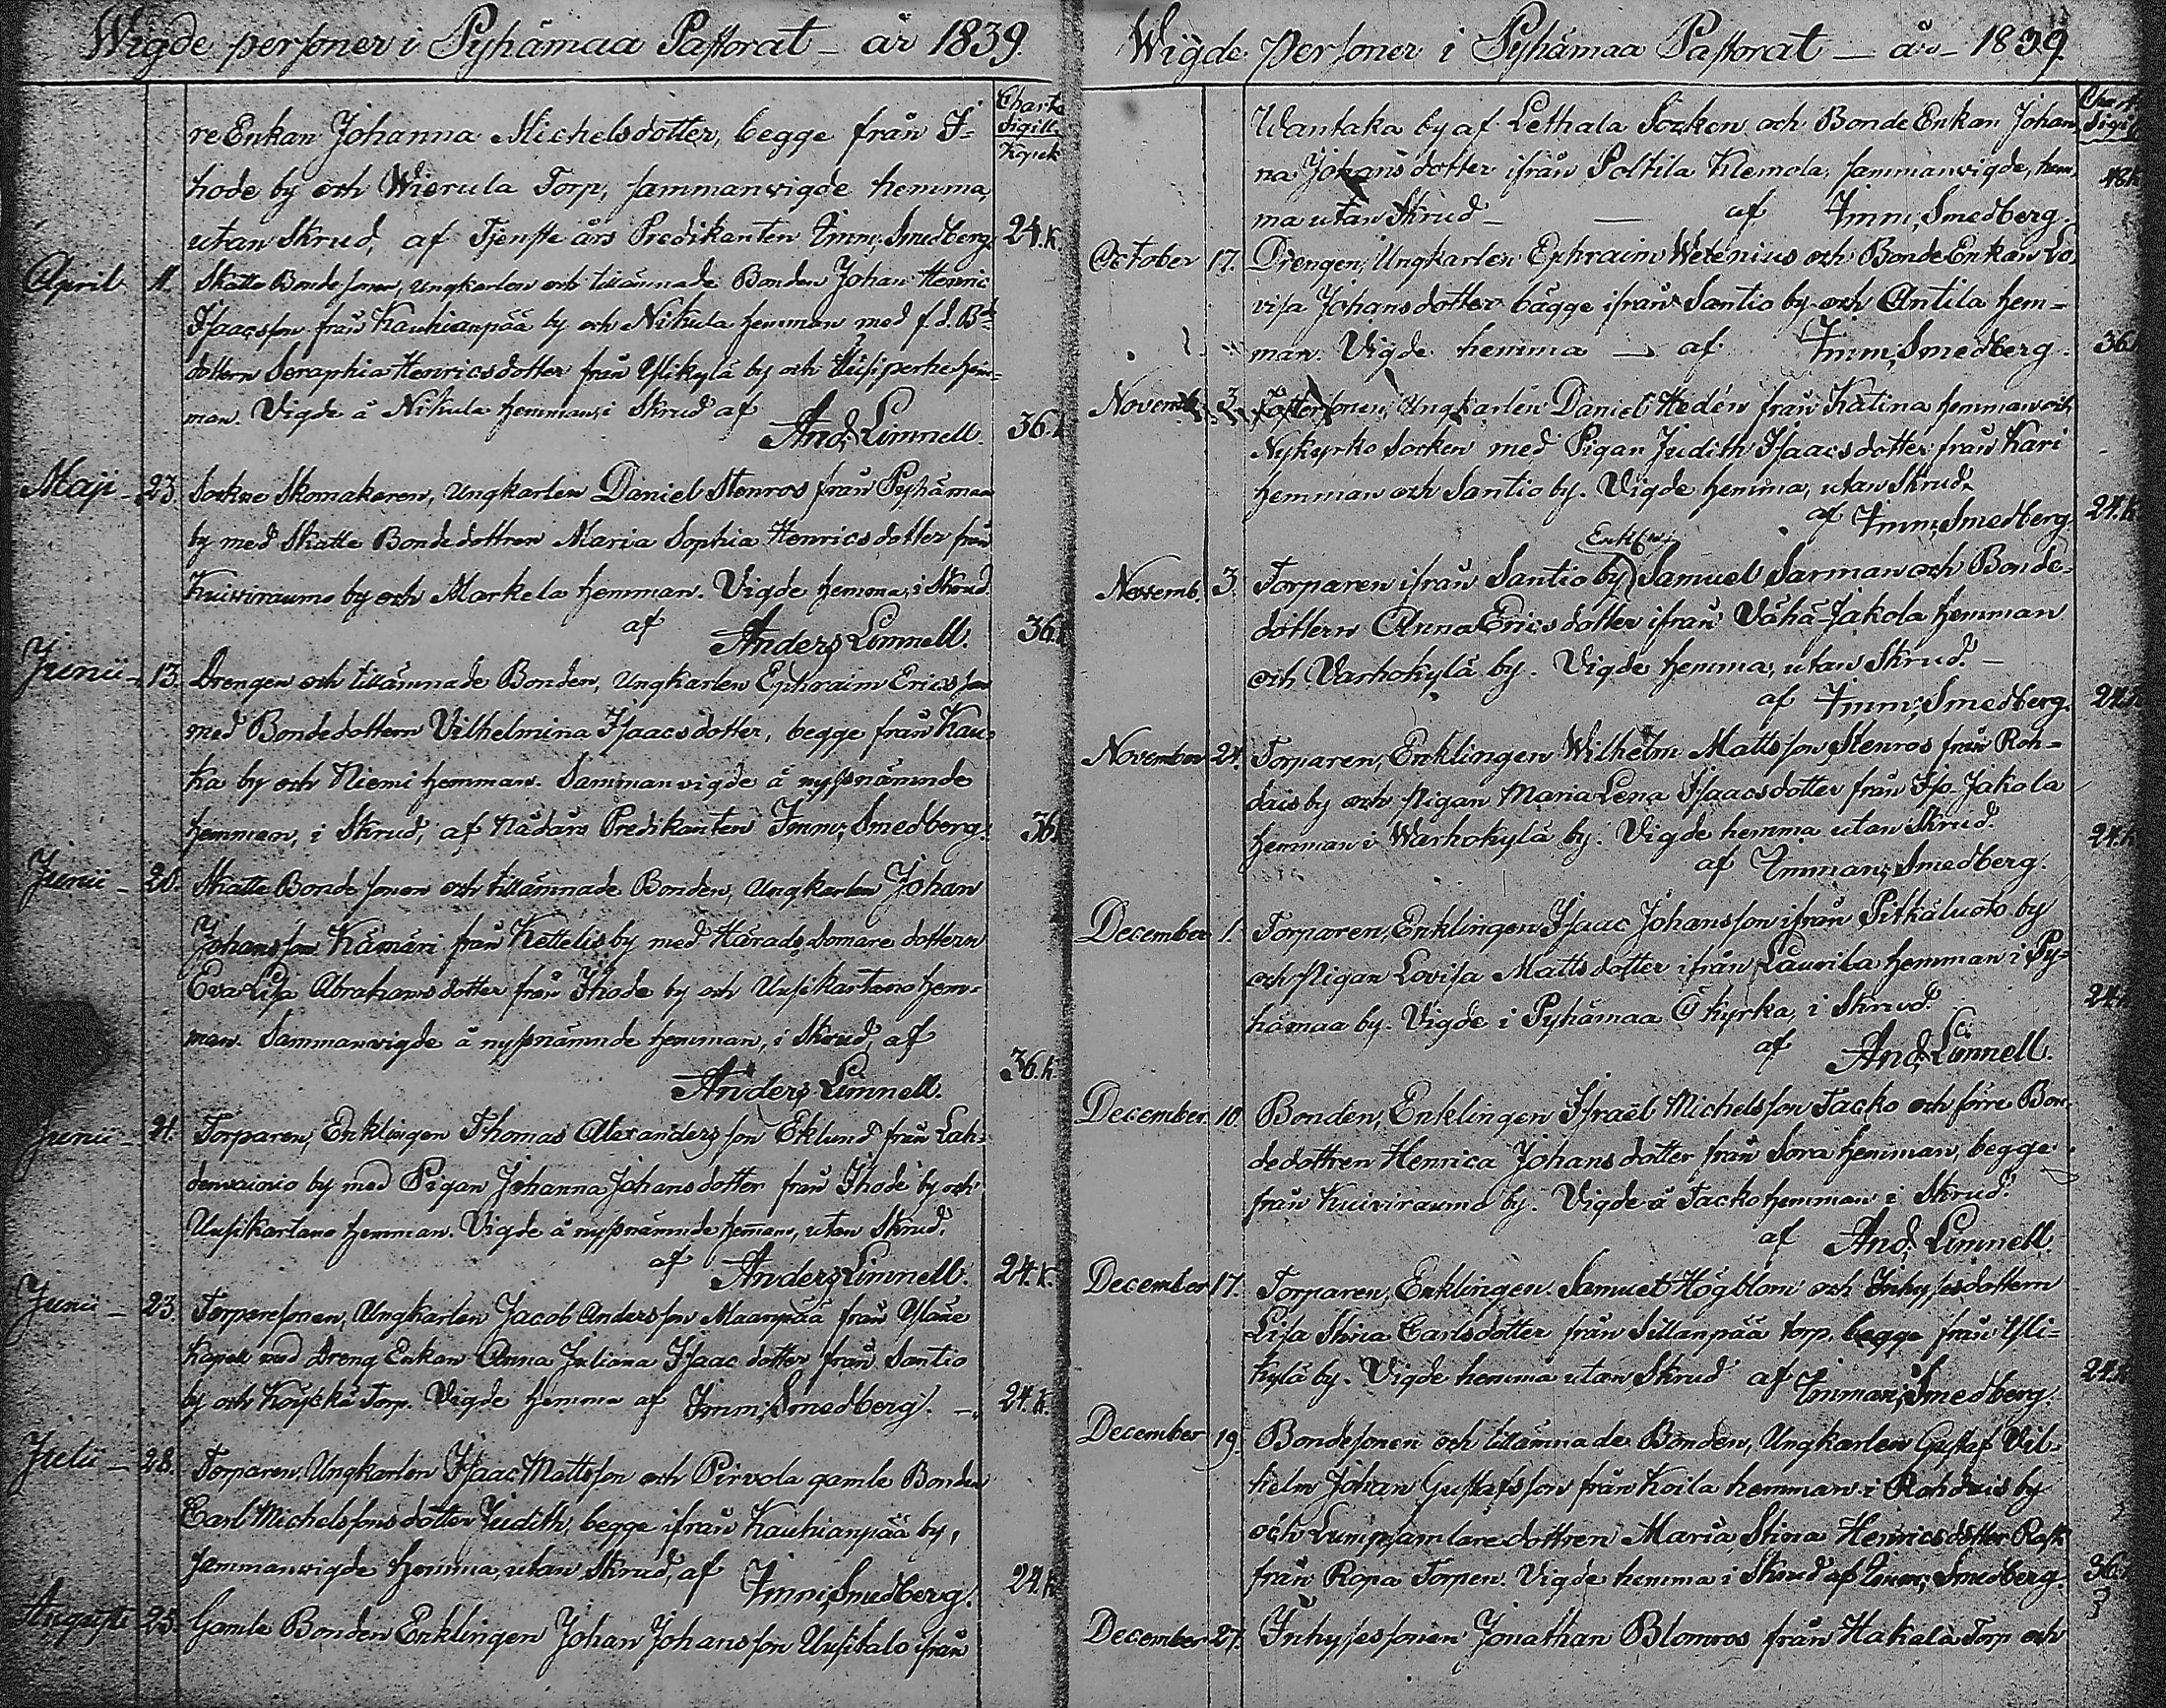 Wigde personer i Pyhämaa Pastorat - år 1839.
Charta Sigill. Kopek
re Enkan Johanna Michelsdotter, begge från I-
hode by och Wierula Torp, sammanvigde hemma,
utan Skrud, af Tjenste års Predikanten Imm; Smedberg. 24. k.
April 11. Skatte Bonde sonen, ungkarlen och tillämnade Bonden Johan Henric
Isaacsson från Kauhianpää by och Nikula hemman med f.d. Bde
dottern Seraphia Henricsdotter från Ylikylä by och hem-
man. Vigde å Nikula hemman, i Skrud af
And; Limnell. 36. k
Maji - 23. Sockne Skomakaren, Ungkarlen Daniel Stenros från Pyhämaa
by med Skatte Bondedottren Maria Sophia Henricsdotter från
Kuivirauma by och Markela hemman. Vigde hemma, i Skrud
af Anders Limnell. 36. k
Junii - 13. Drengen och tillämnade Bonden, Ungkarlen Ephraim Ericsson
med Bondedottern Vilhelmina Isaacsdotter, begge från Kau-
ka by och Niemi hemman. Sammanvigde å nyssnämnde
hemman, i Skrud, af Nådårs Predikanten Imm; Smedberg. 36 k
Junii - 20. Skatte Bonde sonen och tillämnade Bonden, Ungkarlen Johan
Johansson Kämäri från Kettelis by med Härads Domare dottern
Eva Lisa Abrahamsdotter från Ihode by och Uusikartano hem-
man. Sammanvigde å nyssnämnde hemman, i Skrud, af
Anders Limnell. 36. k
Junii - 21. Torparen, Enklingen Thomas Alexandersson Eklund från Lah-
denvainio by med Pigan Johanna Johansdotter från Ihode by och
Uusikartano hemman. Vigde å nyssnämnde hemman, utan Skrud.
af Anders Limnell. 24. k.
Junii - 23. Torparesonen, Ungkarlen Jacob Andersson Maanpää från Yläne
Kapell med Dreng Enkan Anna Juliana Isaacdotter från Santio
by och Köyckä Torp. Vigde hemma af Imm; Smedberg. - 24. k.
Julii - 28. Torparen, Ungkarlen Isaac Mattsson och Pirvola gamle Bonden
Carl Michelssons dotter Judith, begge ifrån Kauhianpää by,
sammanvigde hemma, utan Skrud, af Imm; Smedberg. 24. k
Augusti 25. Gamle Bonden Enklingen Johan Johansson Uusitalo från
Wigde Personer i Pyhämaa Pastorat - år - 1839.
Wantaka by af Lethala Socken och Bonde Enkan Johan-
na Johansdotter ifrån Poltila Klemola, sammanvigde, hem- 48 k
ma utan Skrud - af Imm; Smedberg.
October 17. Drengen, Ungkarlen Ephraim Wetenius och Bonde Enkan Lo-
visa Johansdotter bägge ifrån Santio by och Antila hem-
man. Vigde hemma - af Imm; Smedberg. 36
Novemb. 3. Ungkarlen Daniel Hedén från Katina hemman och
Nykyrko Socken med Pigan Judith Isaacsdotter från Kari
hemman och Santio by. Vigde hemma, utan Skrud.
af Imm; Smedberg. 24. k
Novemb. 3. Torparen ifrån Santio by Enkl: Samuel Sarman och Bonde-
dottern Anna Ericsdotter ifrån Vähä-Jakola hemman
och Varhokylä by. Vigde hemma, utan Skrud. -
af Imm; Smedberg. 24. k
November 24. Torparen, Enklingen Wilhelm Mattsson Stenros från Roh-
dais by och Pigan Maria Lena Isaacsdotter från Iso Jakola
hemman i Warhokylä by. Vigde hemma utan Skrud. 24. k
af Imman; Smedberg.
December 1. Torparen, Enklingen Isaac Johansson ifrån Pitkäluoto by
och Pigan Lovisa Mattsdotter ifrån Laurila hemman i Py-
hämaa by. Vigde i Pyhämaa Ö kyrka, i Skrud. 24
af And; Limnell.
December 10. Bonden, Enklingen Israël Michelsson Jacko och förre Bon-
dedottren Henrica Johansdotter från Sora hemman, begge
från Kuivirauma by. Vigde å Jacko hemman i Skrud.
af And; Limnell.
December 17. Torparen, Enklingen Samuel Högblom och Inhysesdottern
Lisa Stina Carlsdotter från Sillanpää torp, begge från Yli-
kylä by. Vigde hemma utan Skrud af Imman; Smedberg. 24
December 19. Bondesonen och tillämnade Bonden, Ungkarlen Gustaf Vil-
helm Johan Gustafsson från Koila hemman i Rohdais by
och Lumpsamlare dottren Maria Stina Henricsdotter
från Ropa Torpen. Vigde hemma i Skrud af Imm; Smedberg. 36
December 27. Inhysessonen Jonathan Blomros från Hakala Torp och